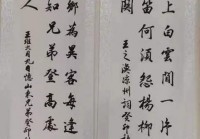 上白雲間一片
笛何須怨楊柳
關
王之渙涼州詞癸卯
鄉為異客每逢
知兄弟登高處
王維九月九日憶山東兄弟癸卯